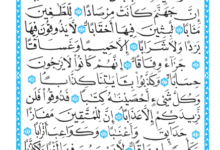 إِنَّ جَهَنَّمَ كَانَتْ مِرْصَادًا لِّلطَّٰغِينَ
مَـَٔابًا لَّٰبِثِينَ فِيهَآ أَحْقَابًا لَّا يَذُوقُونَ فِيهَا
بَرْدًا وَلَا شَرَابًا إِلَّا حَمِيمًا وَغَسَّاقًا
جَزَآءً وِفَاقًا إِنَّهُمْ كَانُوا۟ لَا يَرْجُونَ
حِسَابًا وَكَذَّبُوا۟ بِـَٔايَٰتِنَا كِذَّابًا
وَكُلَّ شَىْءٍ أَحْصَيْنَٰهُ كِتَٰبًا فَذُوقُوا۟ فَلَن
نَّزِيدَكُمْ إِلَّا عَذَابًا إِنَّ لِلْمُتَّقِينَ مَفَازًا
حَدَآئِقَ وَأَعْنَٰبًا وَكَوَاعِبَ أَتْرَابًا